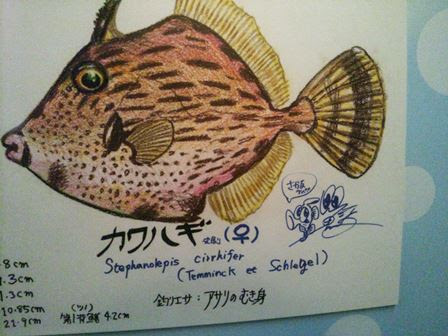 カワハギ 性別:(♀)
Stephanolepis cirrhifer
(Temminck et Schlegel)
釣りエサ:アサリのむき身
8cm
1.3cm
1.3cm
10.85cm
21.9cm
(ツノ)
第1背鰭 4.2cm